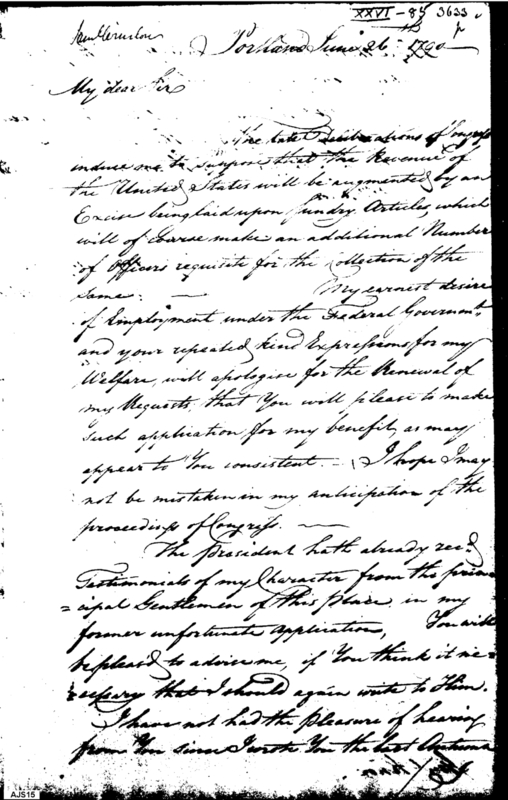 XXVI - 85 3633
Portland June 26th 1790
My dear Sir
The late deliberations of Congress
induce me to suppose that the Revenue of
the United States will be augmented by an
Excise being laid upon Sundry Articles, which
will of Course make an additional Number
of Officers requisite for the Collection of the
Same. — My earnest desire
of Employment under the Federal Governmt.
and your repeated kind Expressions for my
Welfare, will apologise for the Renewal of
my Requests, that You will please to make
such application for my benefit, as may
appear to You consistent. — I hope I may
not be mistaken in my anticipation of the
proceedings of Congress. —
The President hath already recd.
Testimonials of my Character from the prin=
=cipal Gentlemen of this Place in my
former unfortunate application, You will
be pleased to advise me, if You think it ne=
=cessary that I should again write to Him.
I have not had the pleasure of hearing
from You since I wrote You the last Autumn
AJS15